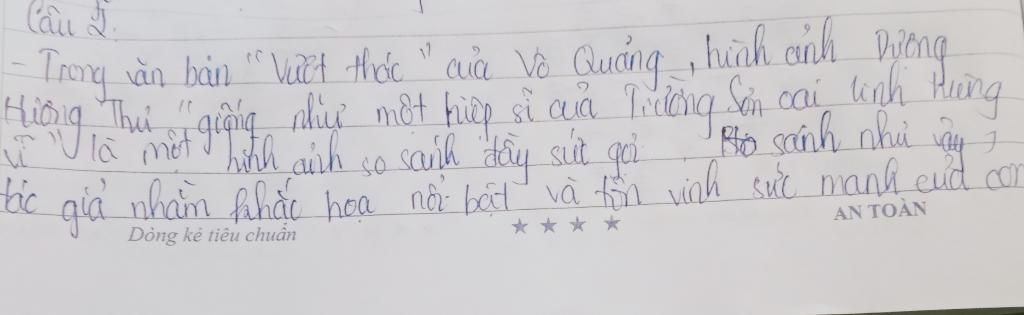 Câu 2.
- Trong văn bản "Vượt thác" của Võ Quảng, hình ảnh Dương
Hương Thư "giống như một hiệp sĩ của Trường Sơn oai linh hùng
vĩ" là một hình ảnh so sánh đầy sức gợi. So sánh như vậy,
tác giả nhằm khắc họa nổi bật và tôn vinh sức mạnh của con
Dòng kẻ tiêu chuẩn ★ ★ ★ ★ AN TOÀN